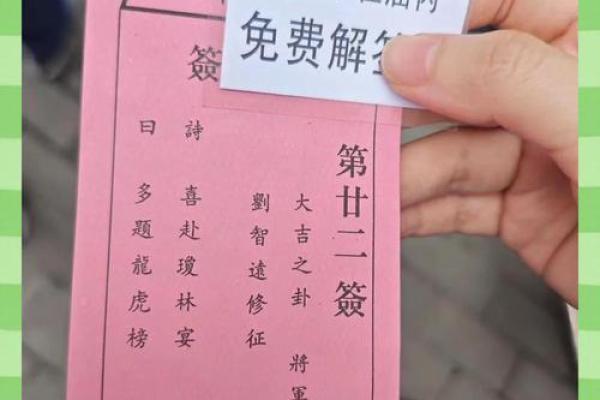 免费解签
第廿二簽
大吉之卦 將軍
劉智遠修征
簽
詩 喜赴瓊林宴
曰 多題龍虎榜